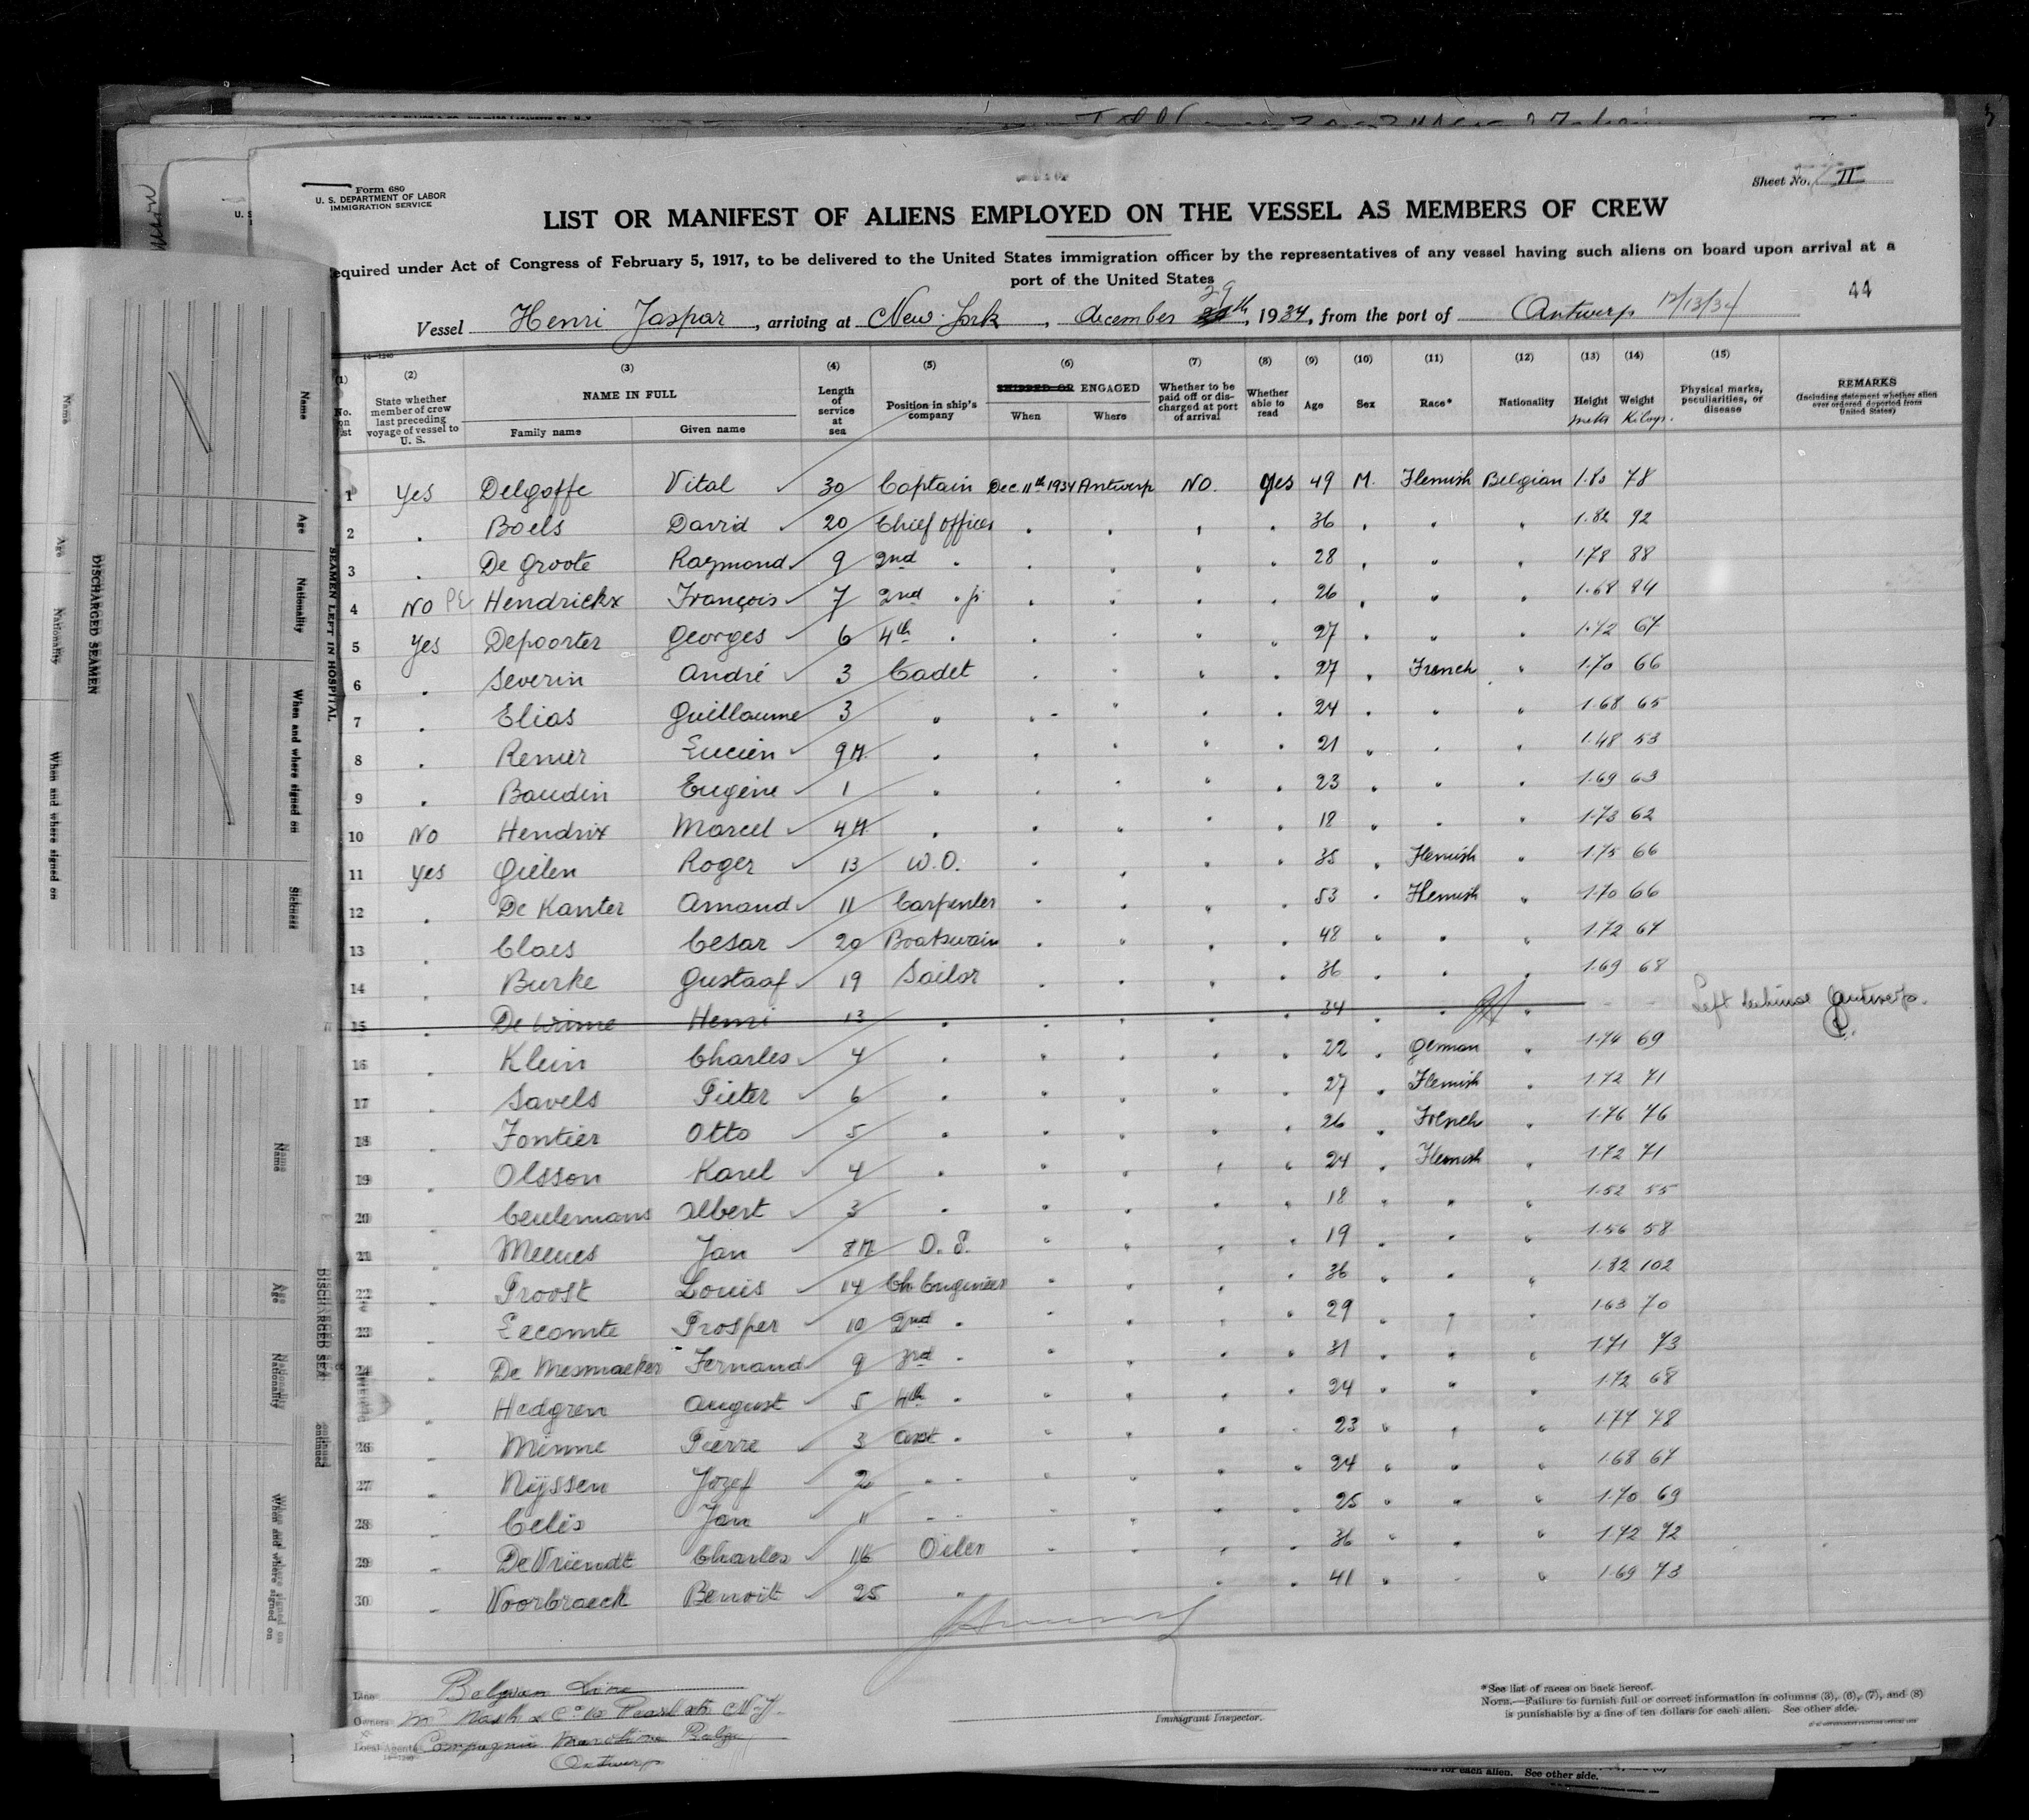 Form 680
U. S. DEPARTMENT OF LABOR
IMMIGRATION SERVICE
Sheet No. II
LIST OR MANIFEST OF ALIENS EMPLOYED ON THE VESSEL AS MEMBERS OF CREW
equired under Act of Congress of February 5, 1917, to be delivered to the United States immigration officer by the representatives of any vessel having such aliens on board upon arrival at a
port of the United States
44
Vessel Henri Jaspar, arriving at New York, december 29 th, 1934, from the port of Antwerp 12/13/34
(1) (2) (3) (4) (5) (6) (7) (8) (9) (10) (11) (12) (13) (14) (15)
No. on list
State whether member of crew last preceding voyage of vessel to U. S.
NAME IN FULL
Family name Given name
Length of service at sea
Position in ship's company
SHIPPED OR ENGAGED
When Where
Whether to be paid off or discharged at port of arrival
Whether able to read
Age Sex Race* Nationality
Height meters
Weight Kilogr.
Physical marks, peculiarities, or disease
REMARKS
(Including statement whether alien ever ordered deported from United States)
1 Yes Delgoffe Vital 30 Captain Dec. 11th 1934 Antwerp NO. Yes 49 M. Flemish Belgian 1.80 78
2 " Boels David 20 Chief officer " " " " 36 " " " 1.82 92
3 " De Groote Raymond 9 2nd " " " " " 28 " " " 1.78 88
4 NO PE Hendrickx François 7 2nd " j. " " " " 26 " " " 1.68 84
5 Yes Depoorter Georges 6 4th " " " " " 27 " " " 1.72 67
6 " Severin André 3 Cadet " " " " 27 " French " 1.70 66
7 " Elias Guillaume 3 " " " " " 24 " " " 1.68 65
8 " Remer Lucien 9 M. " " " " " 21 " " " 1.48 53
9 " Baudin Eugène 1 " " " " " 23 " " " 1.69 63
10 NO Hendrix Marcel 4 M. " " " " " 18 " " " 1.73 62
11 Yes Gielen Roger 13 W.O. " " " " 35 " Flemish " 1.75 66
12 " De Kanter Amand 11 Carpenter " " " " 53 " Flemish " 1.70 66
13 " Claes Cesar 20 Boatswain " " " " 48 " " " 1.72 67
14 " Burke Gustaaf 19 Sailor " " " " 36 " " " 1.69 68
15 " De Henri 13 " " " " " 34 " " " Left behind Antwerp.
16 " Klein Charles 4 " " " " " 22 " German " 1.74 69
17 " Savels Pieter 6 " " " " " 27 " Flemish " 1.72 71
18 " Fontier Otto 5 " " " " " 26 " French " 1.76 76
19 " Olsson Karel 4 " " " " " 24 " Flemish " 1.72 71
20 " Ceulemans Albert 3 " " " " " 18 " " " 1.52 55
21 " Meeues Jan 8 M O. S. " " " " 19 " " " 1.56 58
22 " Proost Louis 14 Ch. Engineer " " " " 36 " " " 1.82 102
23 " Lecomte Prosper 10 2nd " " " " " 29 " " " 1.63 70
24 " De Mesmaeker Fernand 9 3rd " " " " " 31 " " " 1.71 73
" Hedgren August 5 4th " " " " " 24 " " " 1.72 68
26 " Minne Pierre 3 asst " " " " " 23 " " " 1.77 78
27 " Nijssen Jozef 2 " " " " " " 24 " " " 1.68 67
28 " Celis Jan " " " " " " " 25 " " " 1.70 69
29 " De Vriendt Charles 16 Oiler " " " " 36 " " " 1.72 72
30 " Voorbraeck Benoit 25 " " " 41 " " " 1.69 73
Line Belgian Line
Owners Nash & Co 10 Pearl str N.Y.
Local Agents Compagnie Maritime Belge
Antwerp
Immigrant Inspector.
*See list of races on back hereof.
NOTE.—Failure to furnish full or correct information in columns (3), (6), (7), and (8)
is punishable by a fine of ten dollars for each alien. See other side.
for each alien. See other side.
SEAMEN LEFT IN HOSPITAL
Name
Age
Nationality
When and where signed on
Sickness
DISCHARGED SEAMEN
Name
Age
Nationality
When and where signed on
Name
Age
Nationality
When and where signed on
DISCHARGED SEA
continued